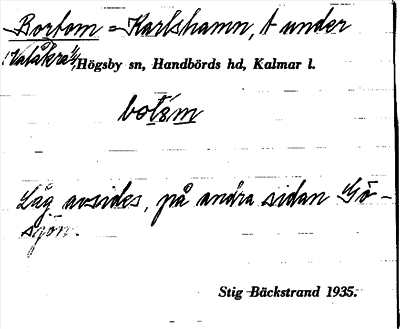 Bortom = Karlshamn, t under
Valåkra, Högsby sn, Handbörds hd, Kalmar l.
botém
Låg avsides, på andra sidan Gö-
sjön.
Stig Bäckstrand 1935.